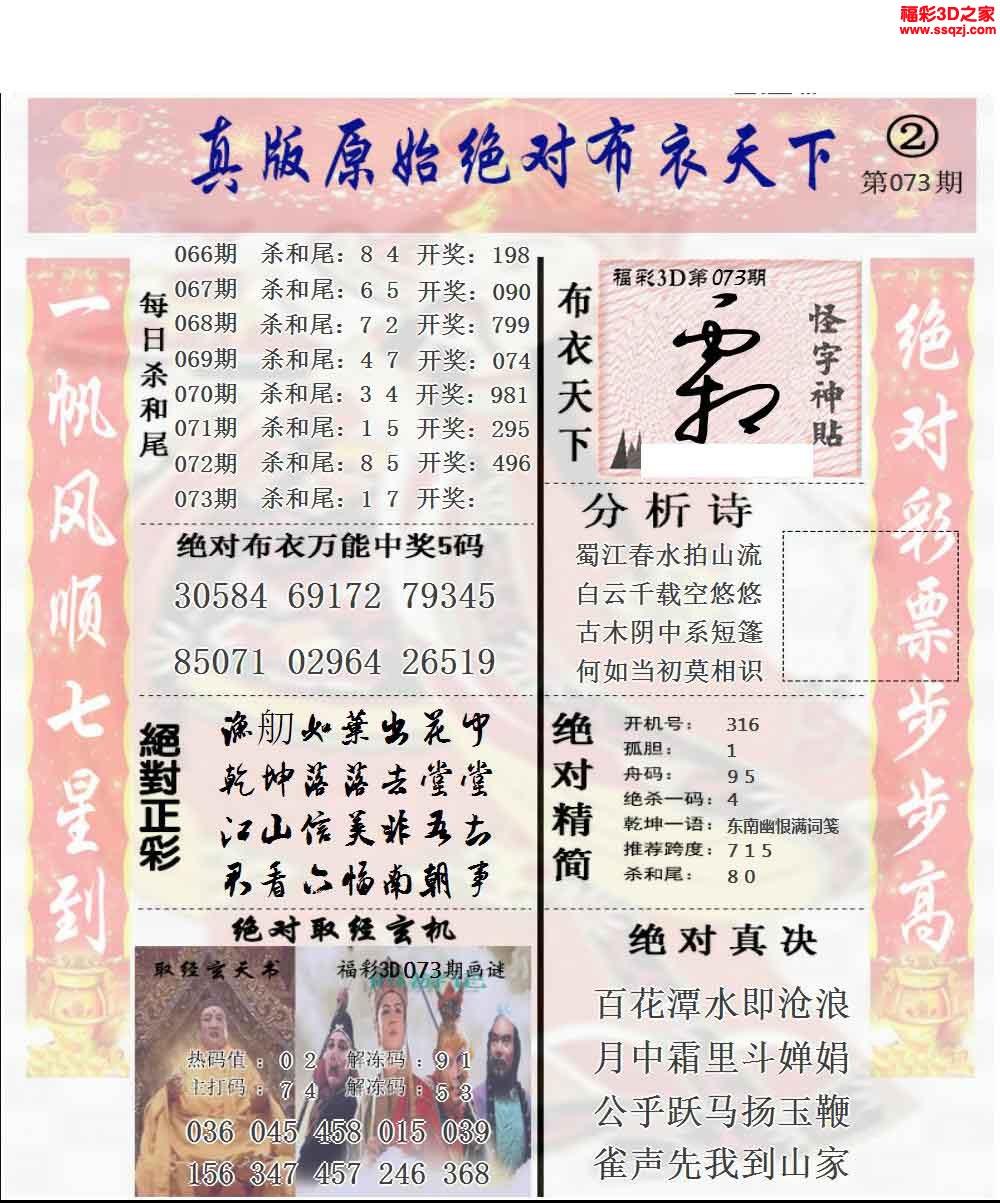 福彩3D之家
www.ssqzj.com
真版原始绝对布衣天下
②
第073期
一帆风顺七星到
每日杀和尾
066期 杀和尾：8 4 开奖：198
067期 杀和尾：6 5 开奖：090
068期 杀和尾：7 2 开奖：799
069期 杀和尾：4 7 开奖：074
070期 杀和尾：3 4 开奖：981
071期 杀和尾：1 5 开奖：295
072期 杀和尾：8 5 开奖：496
073期 杀和尾：1 7 开奖：
绝对布衣万能中奖5码
30584 69172 79345
85071 02964 26519
絕對正彩
渔舠如葉出花中
乾坤落落去堂堂
江山信美非吾土
君看六幅南朝事
绝对取经玄机
取经玄天书
福彩3D073期画谜
热码值：0 2 解冻码：9 1
主打码：7 4 解冻码：5 3
036 045 458 015 039
156 347 457 246 368
布衣天下
福彩3D第073期
霜
怪字神貼
分析诗
蜀江春水拍山流
白云千载空悠悠
古木阴中系短篷
何如当初莫相识
绝对精简
开机号： 316
孤胆： 1
舟码： 9 5
绝杀一码：4
乾坤一语：东南幽恨满词笺
推荐跨度：7 1 5
杀和尾： 8 0
绝对真决
百花潭水即沧浪
月中霜里斗婵娟
公乎跃马扬玉鞭
雀声先我到山家
绝对彩票步步高